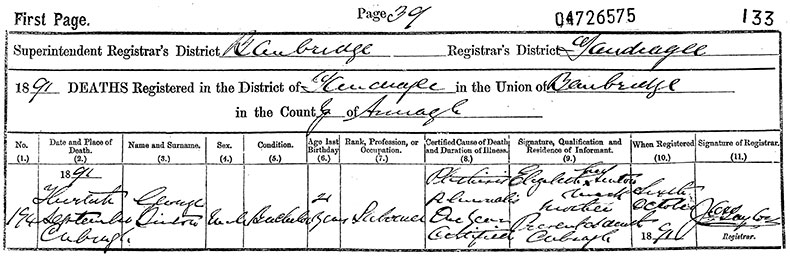 First Page.
Page 39
04726575
133
Superintendent Registrar's District Banbridge Registrar's District Tandragee
1891 DEATHS Registered in the District of Tandragee in the Union of Banbridge
in the County of Armagh
No. (1.)
Date and Place of Death. (2.)
Name and Surname. (3.)
Sex. (4.)
Condition. (5.)
Age last Birthday (6.)
Rank, Profession, or Occupation. (7.)
Certified Cause of Death and Duration of Illness. (8.)
Signature, Qualification and Residence of Informant. (9.)
When Registered (10.)
Signature of Registrar. (11.)
194
1891
September
George
Bachelor
Years
Labourer
Phthisis
Pulmonalis
One Year
Certified
Elizabeth
her
x
mark
mother
Present at death
Sixth
October
1891
Registrar.